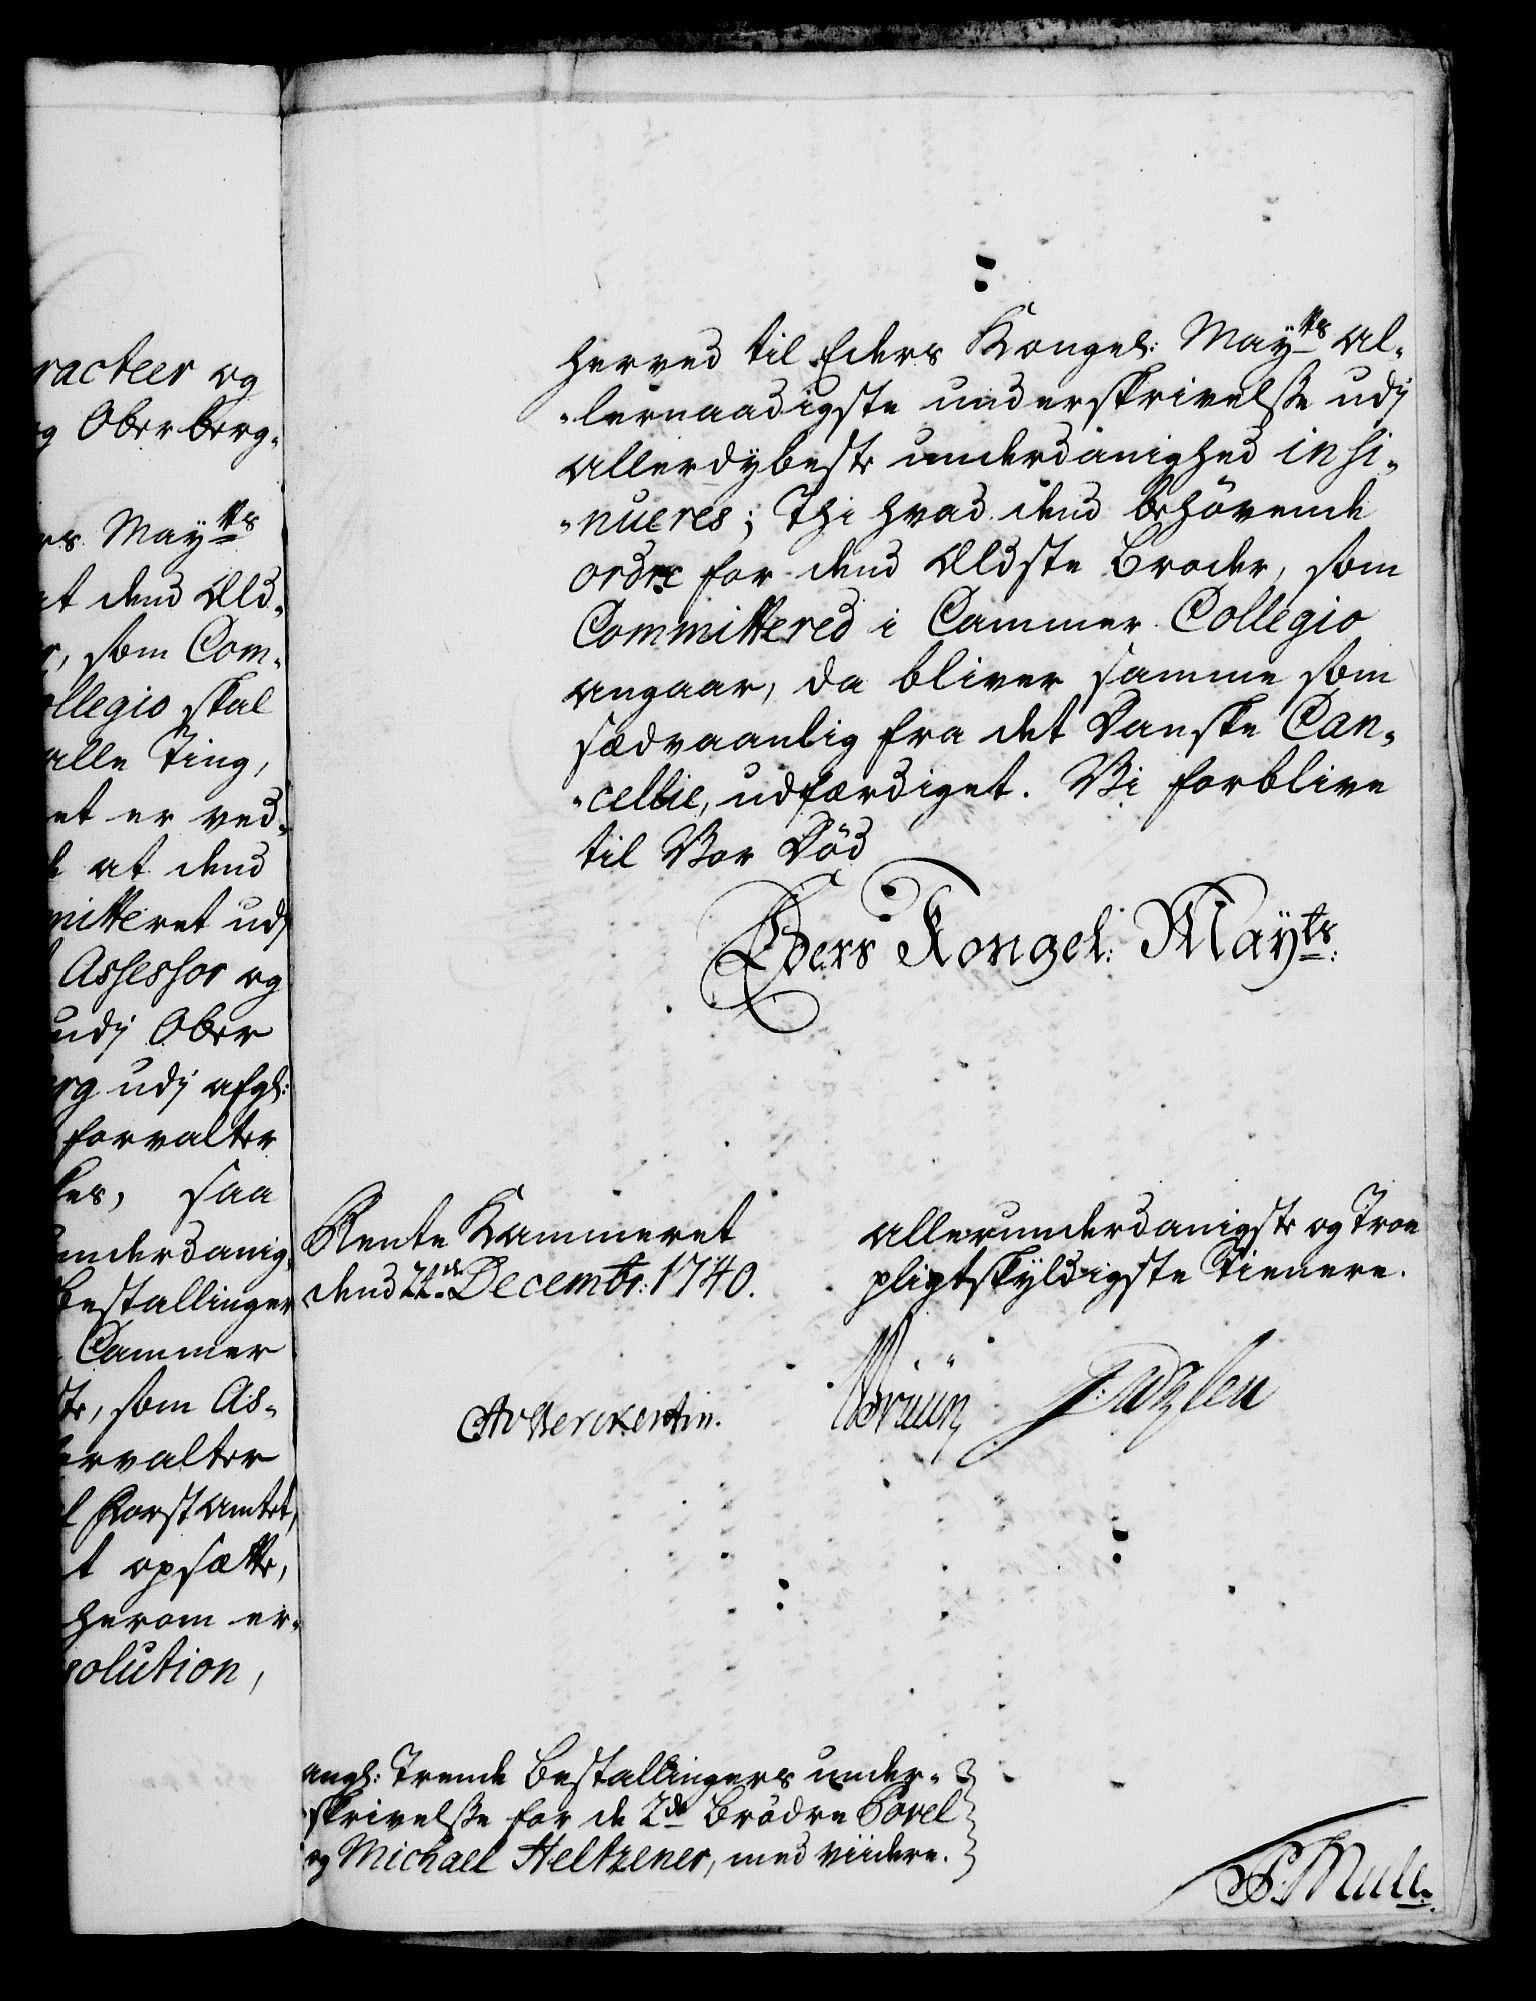 racteer og
g Oberberg-
rs Maytts
at dend Eld-
r, som Com-
ollegio skal
alle Ting,
et er ved-
at dend
mitteret udj
Assessor og
udj Ober
rg udj afgl:
forvalter
kes, saa
underdanig-
Bestallinger
Cammer
te, som As-
ervalter
l Forst Amtet,
t opsætte,
herom er-
solution,
herved til Eders Kongel: Maytts Al-
-lernaadigste underskrivelsse udj
allerdybeste underdanighed insi-
-nueres; Thi hvad dend behövende
ordre for dend Eldste Broder, som
Committered i Cammer Collegio
angaar, da bliver samme som
sædvaanlig fra det Danske Can-
-cellie, udfærdiget. Vi forblive
til Vor Död
Eders Kongel: Mayts:
Rente Kammeret
dend 22de Decembr: 1740.
allerunderdanigste og Troe
pligtskyldigste Tienere.
CAvBerckentin.
Angl: Trende Bestallingers under-
skrivelsse for de 2de Brödre Povel
og Michael Heltzener, med viidere.
P. Mule.